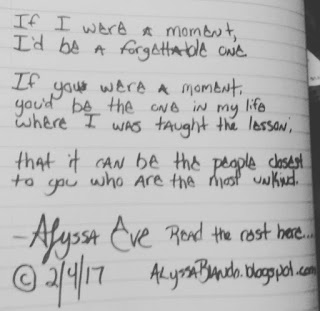 If I were a moment,
I'd be a forgettable one
If you were a moment,
you'd be the one in my life
where I was taught the lesson,
that it can be the people closest
to you who are the most unkind.
- Alyssa Eve Read the rest here...
© 2/4/17 AlyssaBlando.blogspot.com